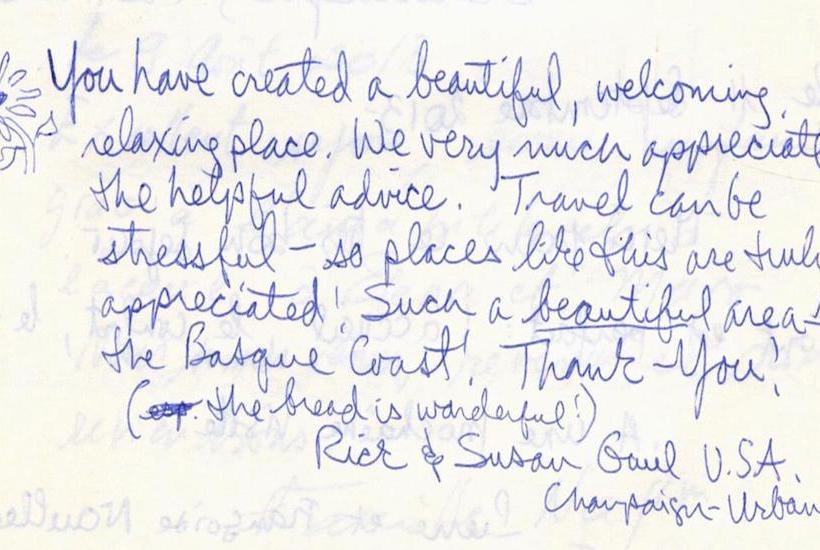 You have created a beautiful, welcoming,
relaxing place. We very much appreciate
the helpful advice. Travel can be
stressful - so places like this are trul
appreciated! Such a beautiful area -
the Basque Coast! Thank-You!
(the bread is wonderful!)
Rick & Susan Gaul U.S.A.
Champaign-Urban